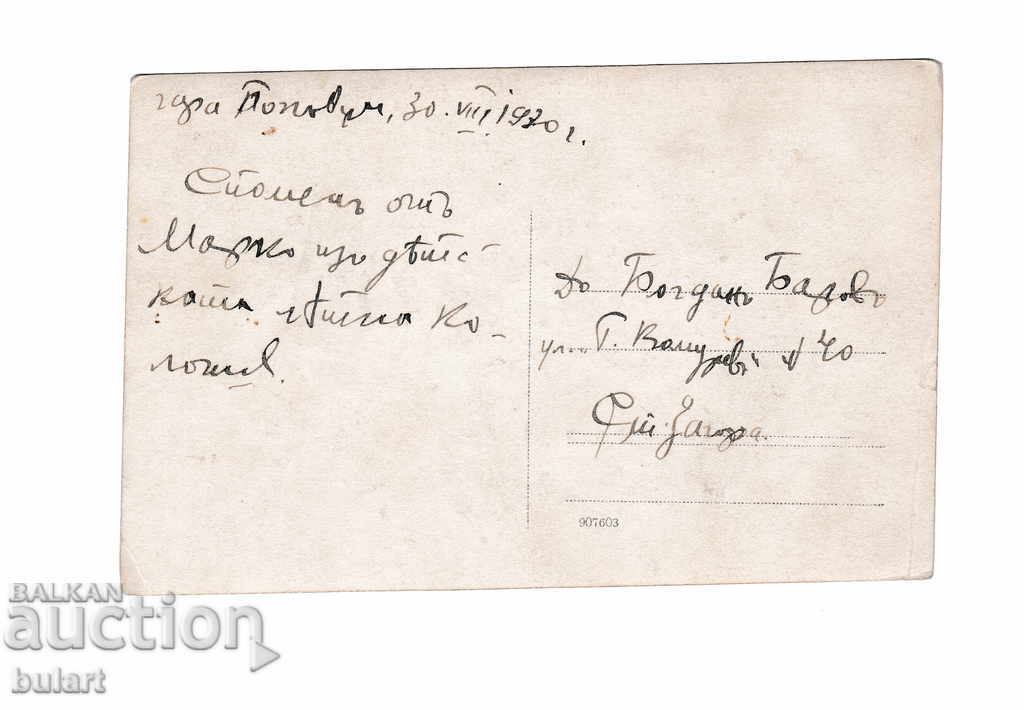 гара Поповци, 30. VIII 1920 г.
Споменъ отъ
Марко изъ дѣтс-
ката лѣтна ко-
лония.
До Богданъ Бадовъ
ул. Г. № 40
Ст. Загора.
907603
BALKAN
auction
bulart